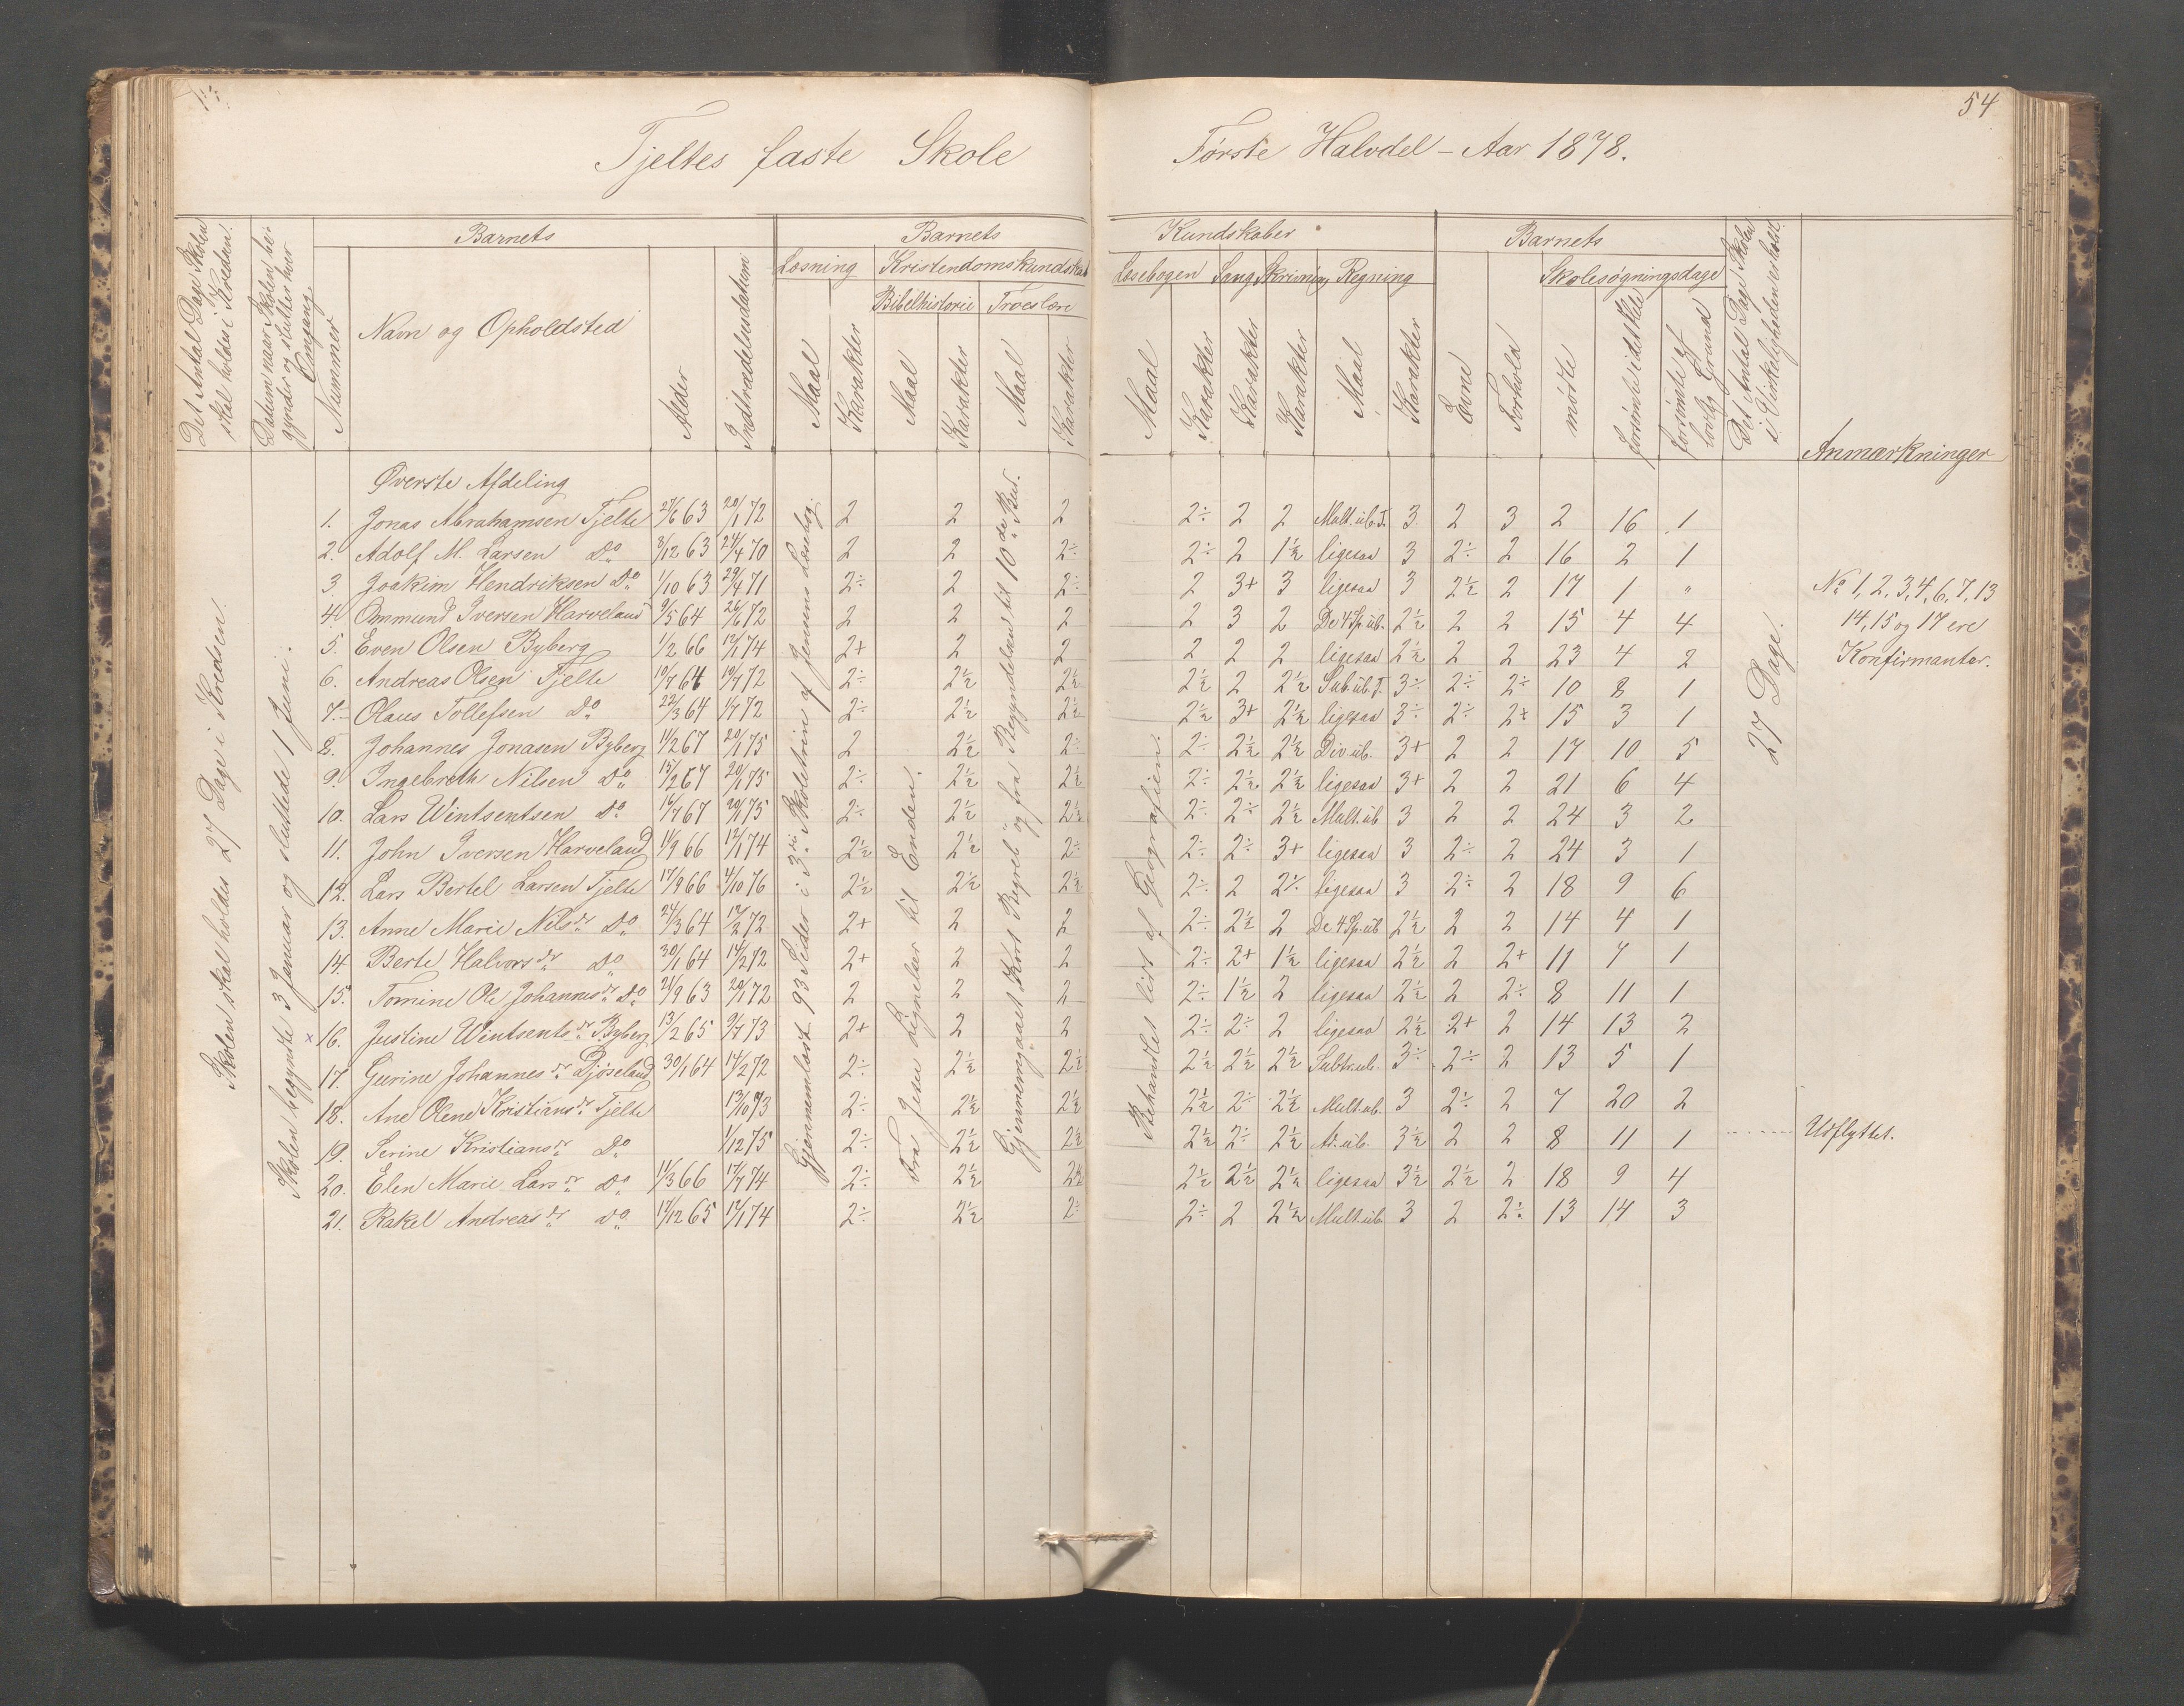 54
Tjeltes faste Skole Første Halvdel - Aar 1878.
Det Antal Dage Skolen skal holdes i Kredsen.
Datum naar Skolen begynder og slutter hver Omgang
Barnets
Nummer
Navn og Opholdsted
Alder
Indtrædelsesdatum
Barnets Kundskaber
Læsning Kristendomskundskab
Bibelhistorie Troeslære
Maal Karakter Maal Karakter Maal Karakter
Læsebogen Sang Skrivning Regning
Maal Karakter Karakter Karakter Maal Karakter
Barnets
Evne Forhold
Skolesøgningsdage
mødte forsømte i det Hele forsømte af lovlig Grund
Det Antal Dage Skolen i Virkeligheden er holdt.
Anmærkninger
Skolen skal holdes 27 Dage i Kredsen.
Skolen begyndte 3 Januar og sluttede 1 Juni.
Gjennemlæst 93 Sider i 3die Skoletrin af Jensens Læsebog
Fra Jesu Lignelser til Enden.
Gjennemgaaet Kort Begreb og fra Begyndelsen til 10de Bud.
Behandlet lidt af Geografien.
27 Dage.
Øverste Afdeling
1. Jonas Abrahamsen Tjelte 27/6 63 20/1 72 2 2 2 2÷ 2 2 Mult. ub. T. 3 2 3 2 16 1
2. Adolf M. Larsen Do 8/12 63 24/4 70 2 2 2÷ 2÷ 2 1½ ligesaa 3 2÷ 2 16 2 1
3. Joakim Hendriksen Do 1/10 63 29/4 71 2÷ 2 2÷ 2 3+ 3 ligesaa 3 2½ 2 17 1 "
No 1, 2, 3, 4, 6, 7, 13
4. Ommund Iversen Harveland 9/5 64 26/6 72 2 2 2 2 3 2 De 4 Sp. ub. 2½ 2 2 15 4 4
14, 15 og 17 ere
5. Even Olsen Byberg 1/2 66 12/1 74 2+ 2 2 2 2 2 ligesaa 2½ 2 2 23 4 2
Konfirmanter.
6. Andreas Olsen Tjelte 10/7 64 19/7 72 2÷ 2½ 2½ 2½ 2 2½ Sub. ub. T. 3÷ 2÷ 2÷ 10 8 1
7. Olaus Tollefsen Do 22/3 64 1/7 72 2÷ 2½ 2½ 2½ 3+ 2½ ligesaa 3÷ 2÷ 2+ 15 3 1
8. Johannes Jonasen Byberg 14/2 67 20/1 75 2 2½ 2÷ 2÷ 2½ 2½ Div. ub. 3+ 2 2 17 10 5
9. Ingebreth Nilsen Do 15/2 67 20/1 75 2÷ 2½ 2½ 2÷ 2½ 2½ ligesaa 3+ 2 2 21 6 4
10. Lars Wintsentsen Do 16/7 67 20/1 75 2÷ 2½ 2½ 2÷ 2÷ 2½ Mult. ub 3 2 2 24 3 2
11. John Iversen Harveland 11/9 66 12/1 74 2½ 2½ 2÷ 2÷ 2÷ 3+ ligesaa 3 2÷ 2 24 3 1
12. Lars Bertel Larsen Tjelte 17/9 66 4/10 76 2½ 2½ 2½ 2÷ 2 2÷ ligesaa 3 2÷ 2 18 9 6
13. Anne Marie Nilsdr Do 24/3 64 12/2 72 2+ 2 2 2÷ 2½ 2 De 4 Sp. ub 2½ 2 2 14 4 1
14. Berte Halvorsdr Do 30/1 64 14/2 72 2+ 2 2 2÷ 2+ 1½ ligesaa 2½ 2 2+ 11 7 1
15. Tomine Ole Johannesdr Do 21/9 63 20/1 72 2 2 2 2÷ 1½ 2 ligesaa 2½ 2 2÷ 8 11 1
x 16. Justine Wintsentsdr Byberg 13/2 65 9/7 73 2+ 2 2 2÷ 2÷ 2 ligesaa 2½ 2+ 2 14 13 2
17. Gurine Johannesdr Djøseland 30/1 64 14/2 72 2÷ 2½ 2½ 2½ 2½ 2½ Subtr. ub. 3÷ 2÷ 2 13 5 1
18. Ane Olene Kristiansdr Tjelte 13/10 73 2÷ 2½ 2½ 2½ 2÷ 2½ Mult. ub. 3 2÷ 2 7 20 2
19. Serine Kristiansdr Do 1/12 75 2÷ 2½ 2½ 2½ 2÷ 2½ Ad. ub. 3½ 2 2 8 11 1 Udflyttet.
20. Elen Marie Larsdr Do 11/3 66 17/7 74 2÷ 2½ 2½ 2½ 2½ 2½ ligesaa 3½ 2½ 2 18 9 4
21. Rakel Andreasdr Do 17/12 65 12/1 74 2÷ 2½ 2÷ 2÷ 2 2½ Mult. ub. 3 2 2÷ 13 14 3